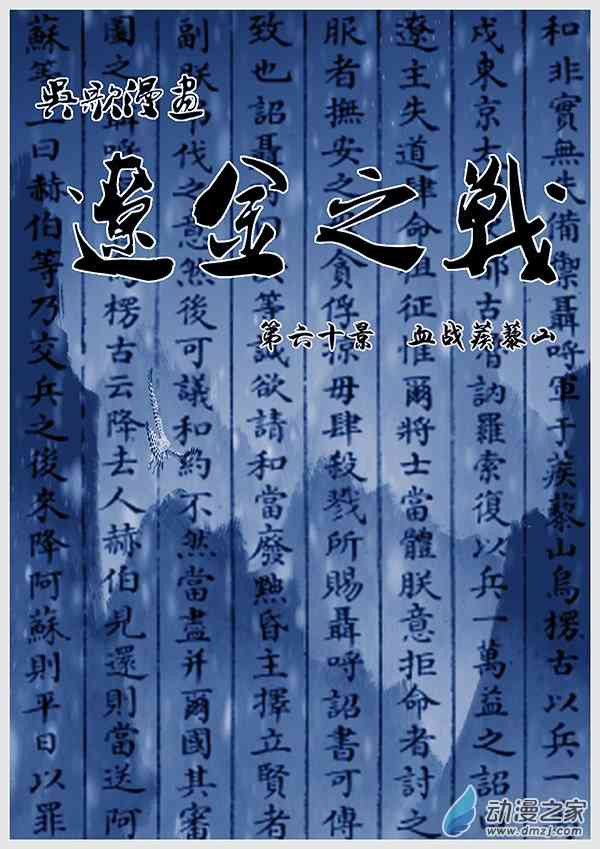 吳歌漫畫
遼金之戰
第六十景 血战蒺藜山
和非實無失備禦聶呼軍于蒺藜山烏楞古以兵一
戍東京古智訥羅索復以兵一萬益之詔
遼主失道肆命徂征惟爾將士當體朕意拒命者討之
服者撫安之貪俘掠毋肆殺戮所賜聶呼詔書可傳
致也詔聶呼曰等誠欲請和當廢黜昏主擇立賢者
副朕弔伐之意然後可議和約不然當盡并爾國其審
圖之聶呼楞古云降去人赫伯見還則當送阿
蘇等曰赫伯等乃交兵之後來降阿蘇則平日以罪
动漫之家
www.dmzj.com